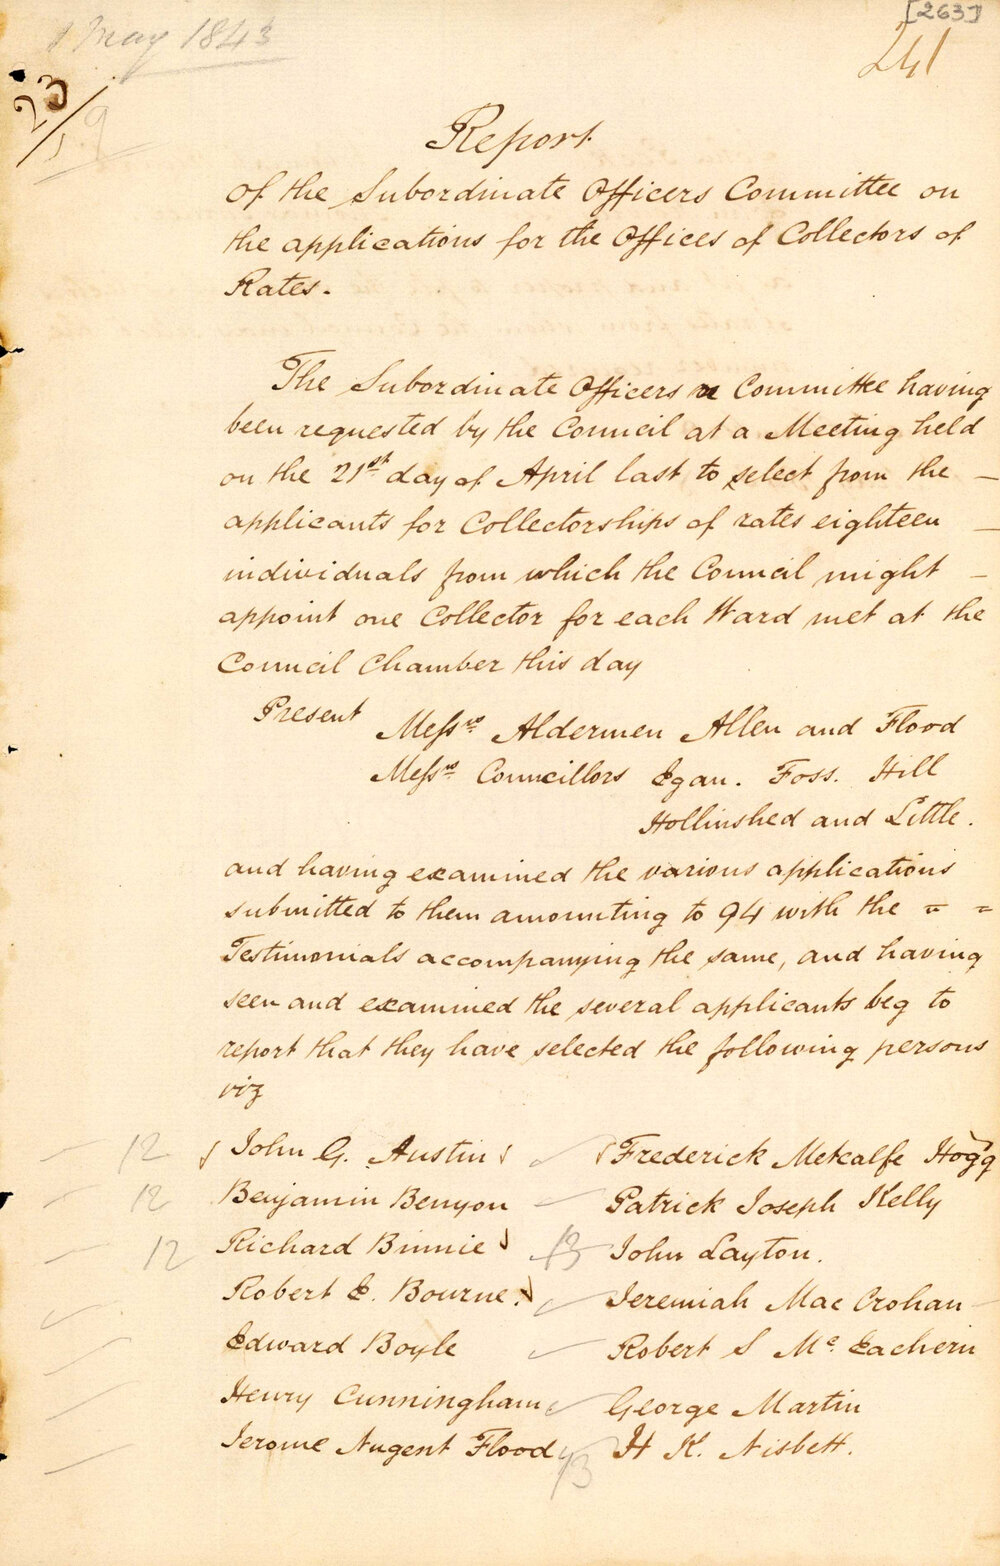 [263]
1 May 1843
241
23/59
Report
Of the Subordinate Officers Committee on
the applications for the Offices of Collectors of
Rates.
The Subordinate Officers Committee having
been requested by the Council at a Meeting held
on the 21st day of April last to select from the –
applicants for Collectorships of rates eighteen –
individuals from which the Council might –
appoint one Collector for each Ward met at the
Council Chamber this day
Present Messrs Aldermen Allen and Flood
Messrs Councillors Egan. Foss. Hill
Hollinshed and Little.
and having examined the various applications
submitted to them amounting to 94 with the = =
Testimonials accompanying the same, and having
seen and examined the several applicants beg to
report that they have selected the following persons
viz
12 John G. Austin Frederick Metcalfe Hogg
12 Benjamin Benyon Patrick Joseph Kelly
12 Richard Binnie 13 John Layton.
Robert E. Bourne. Jeremiah Mac Crohan –
Edward Boyle Robert S Mc Eachern
Henry Cunningham George Martin
Jerome Nugent Flood 13 H K. Nisbett.